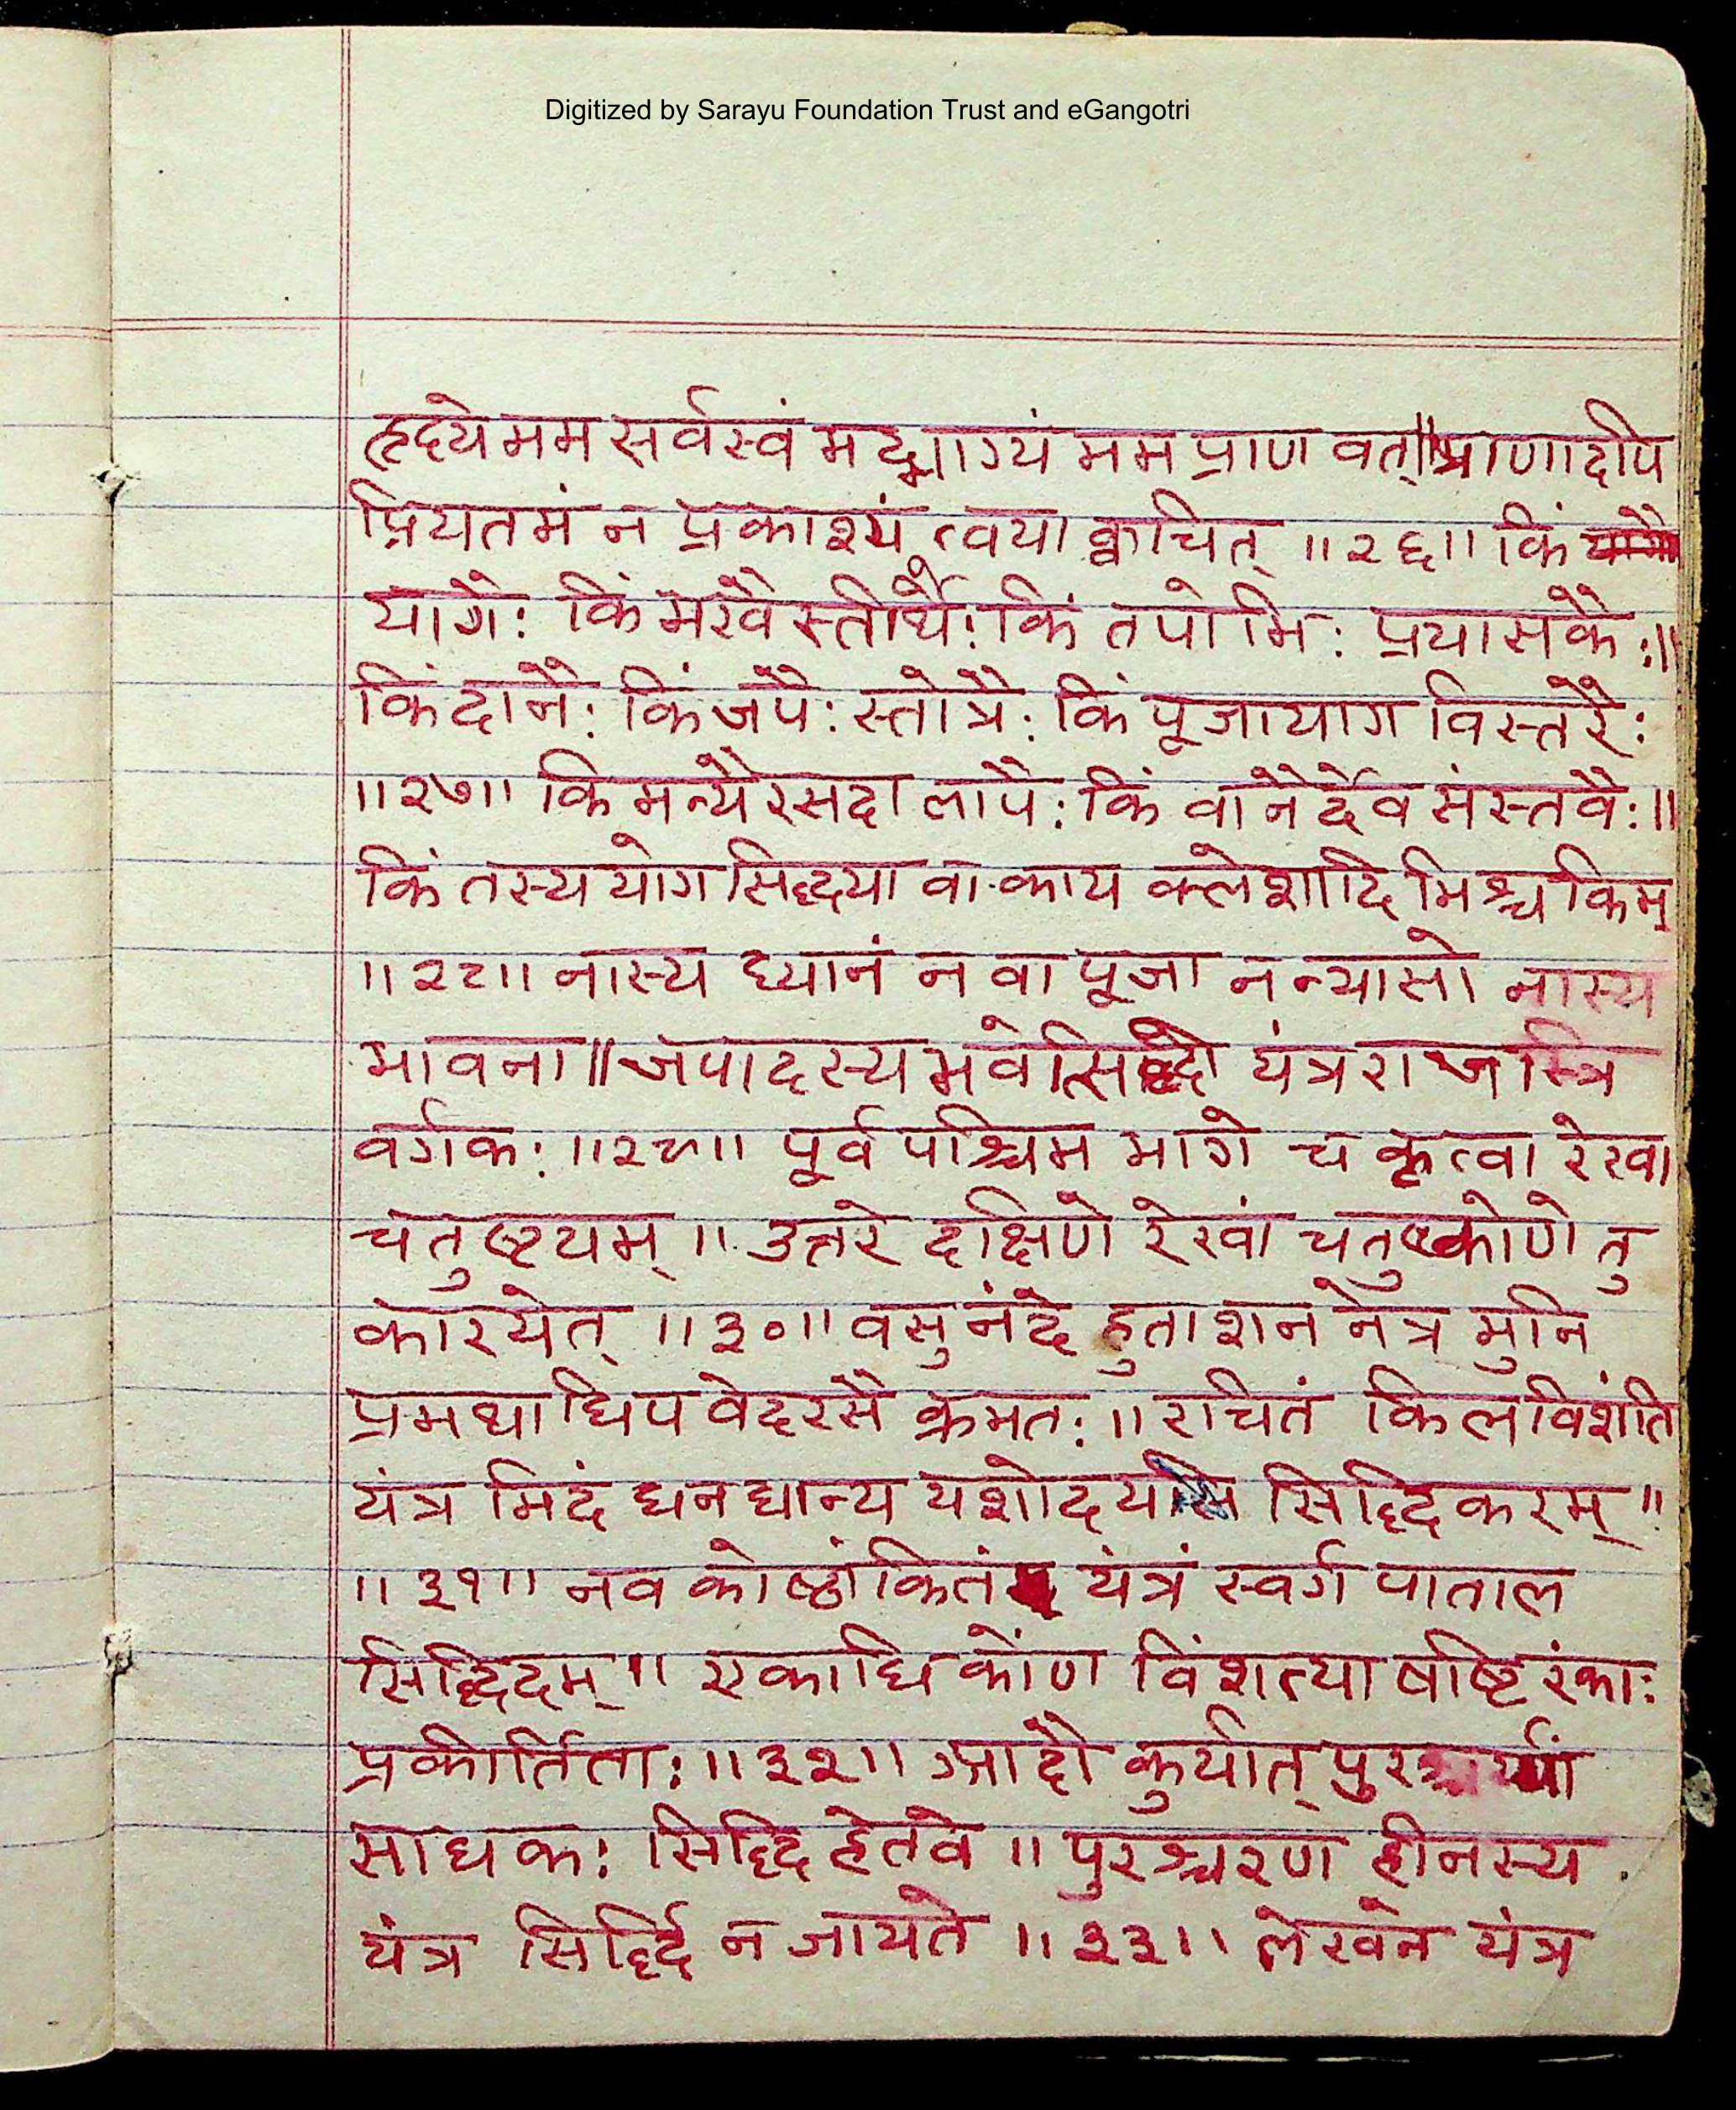 Digitized by Sarayu Foundation Trust and eGangotri
हृद्ये मम सर्वस्वं मद्भाग्यं मम प्राण वत्॥प्राणादपि
प्रियतमं न प्रकाश्यं त्वया क्वचित् ॥२६॥ किं
यागैः किं मखैस्तीर्थैः किं तपोभिः प्रयासकैः॥
किं दानैः किं जपैः स्तोत्रैः किं पूजायाग विस्तरैः
॥२७॥ किमन्यैरसदा लापैः किं वानैर्देव संस्तवैः॥
किं तस्य योग सिद्ध्या वा काय क्लेशादि भिश्च किम्
॥२८॥ नास्य ध्यानं न वा पूजा न न्यासो नास्य
भावना॥जपादस्य भवेत्सिद्धो यंत्रराजस्त्रि
वर्गकः॥२९॥ पूर्व पश्चिम भागे च कृत्वा रेखा
चतुष्टयम्॥ उत्तरे दक्षिणे रेखां चतुष्कोणे तु
कारयेत् ॥३०॥ वसु नंदे हुताशन नेत्र मुनि
प्रमथाधिप वेदरसै क्रमतः॥ रचितं किल विंशति
यंत्र मिदं धन धान्य यशोदय सिद्धि करम्॥
॥३१॥ नव कोष्ठांकितं यंत्रं स्वर्ग पाताल
सिद्धिदम्॥ एकाधि कोण विंशत्या षष्टिरंकाः
प्रकीर्तिताः॥३२॥ आदौ कुर्यात् पुरश्चर्यां
साधकः सिद्धि हेतवे॥ पुरश्चरण हीनस्य
यंत्र सिर्द्धि न जायते ॥३३॥ लेखेन यंत्र